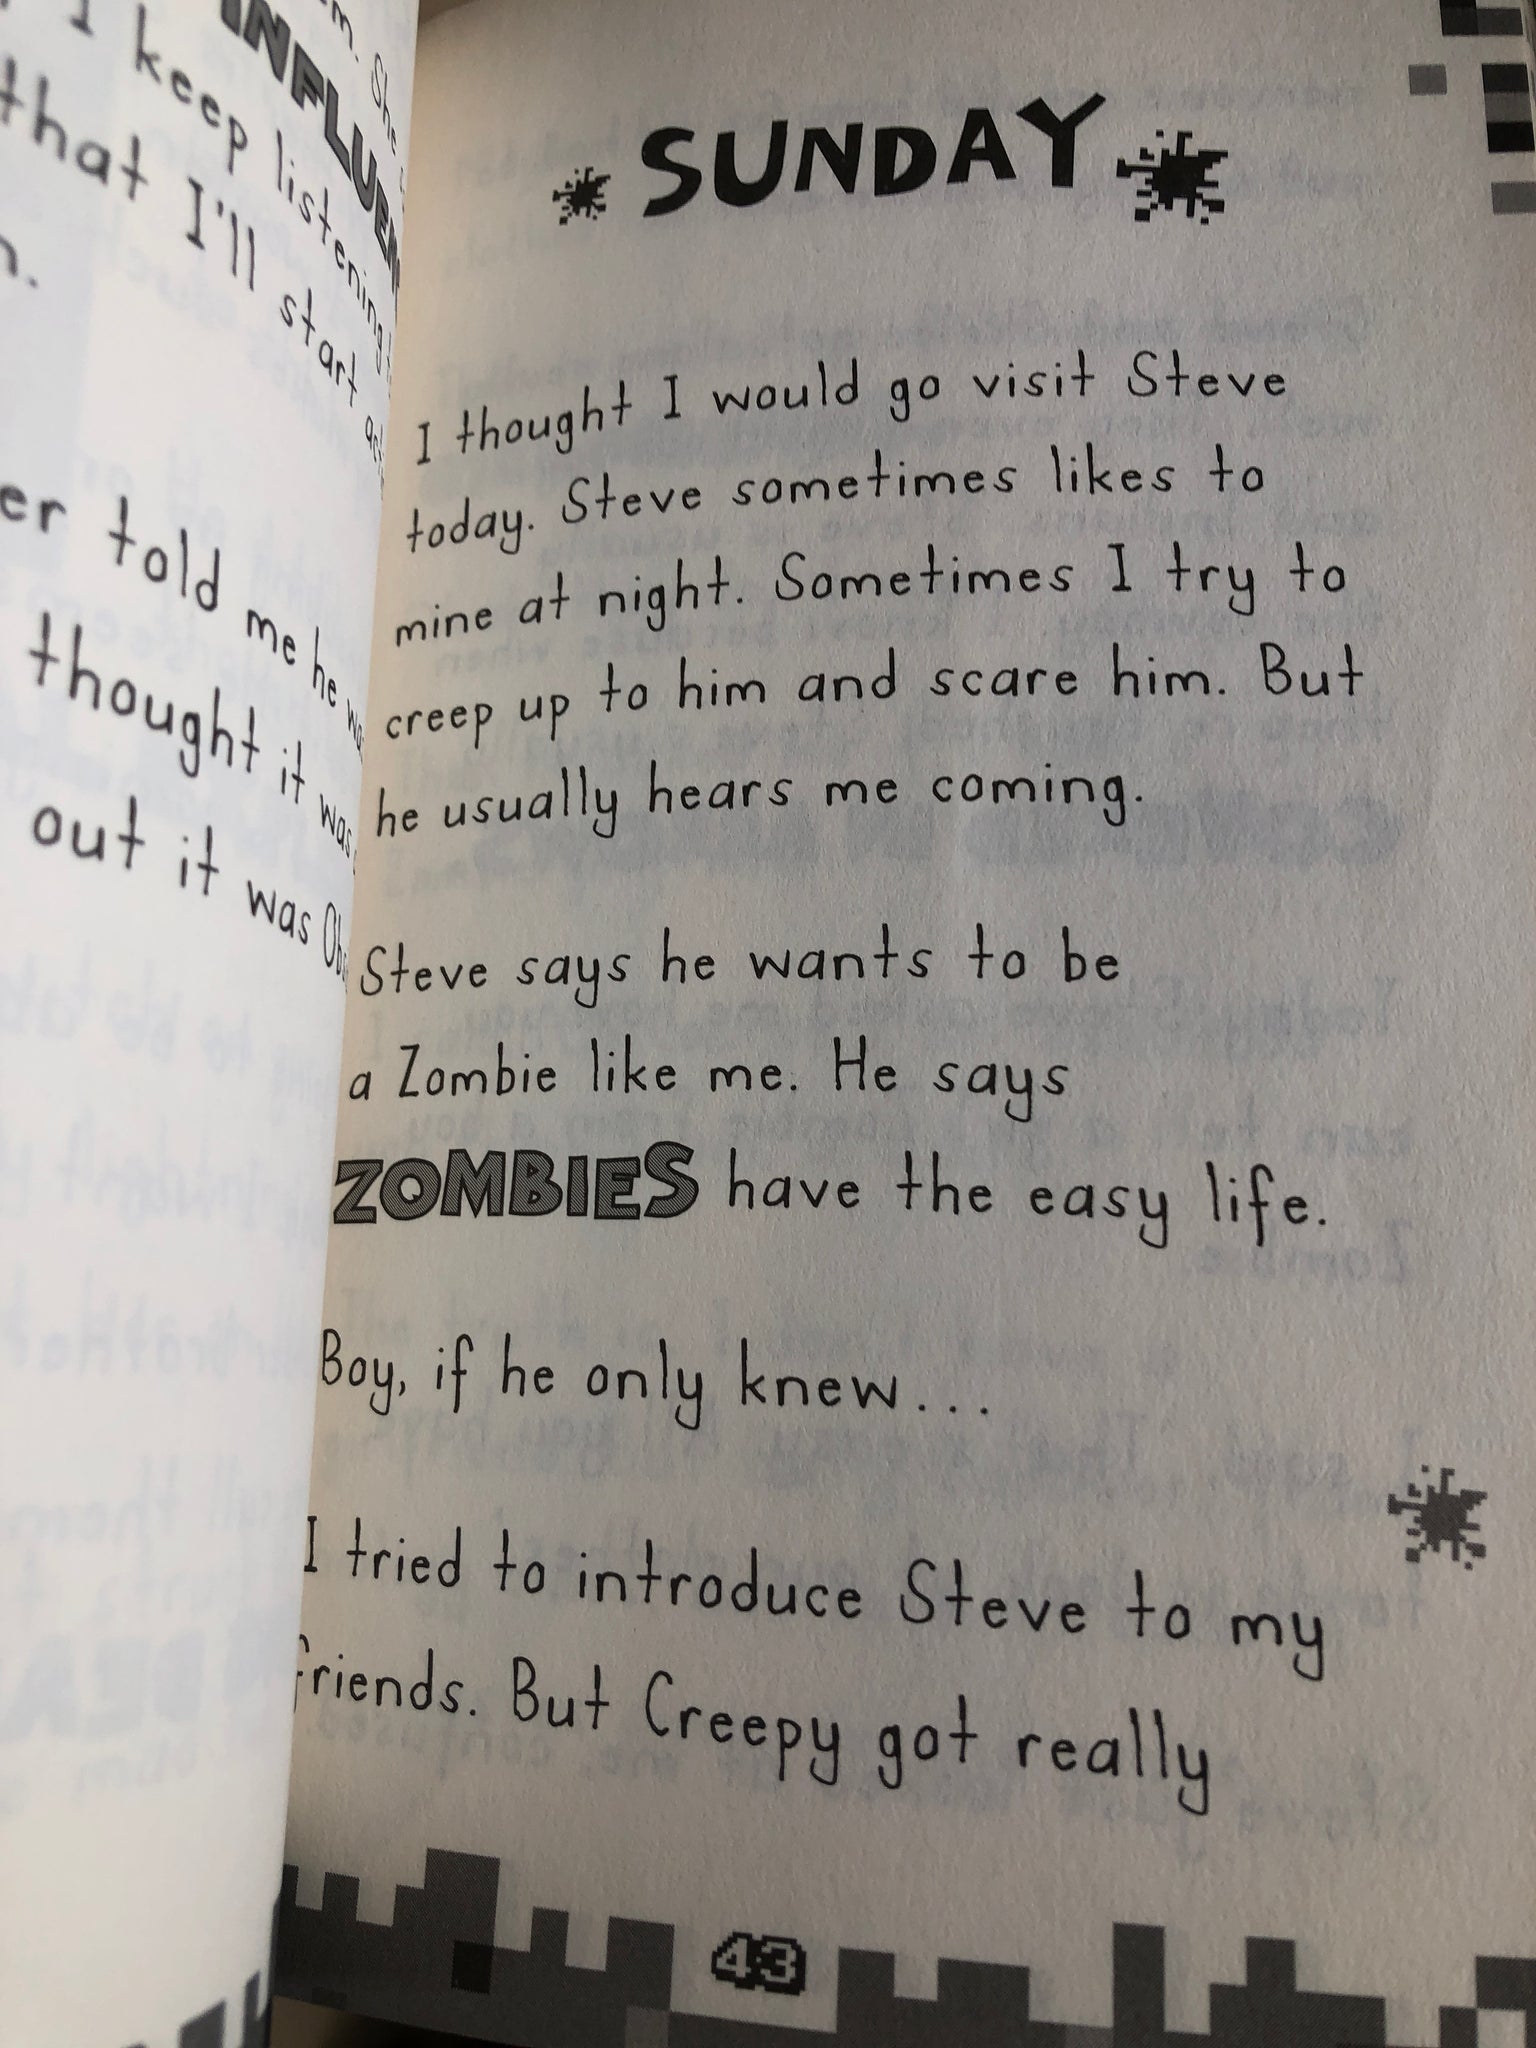 m. She
INFLUEN
I keep listening
that I'll start
n.
er told me he
thought it was
out it was
SUNDAY
I thought I would go visit Steve
today. Steve sometimes likes to
mine at night. Sometimes I try to
creep up to him and scare him. But
he usually hears me coming.
Steve says he wants to be
a Zombie like me. He says
ZOMBIES have the easy life.
Boy, if he only knew...
I tried to introduce Steve to my
friends. But Creepy got really
43